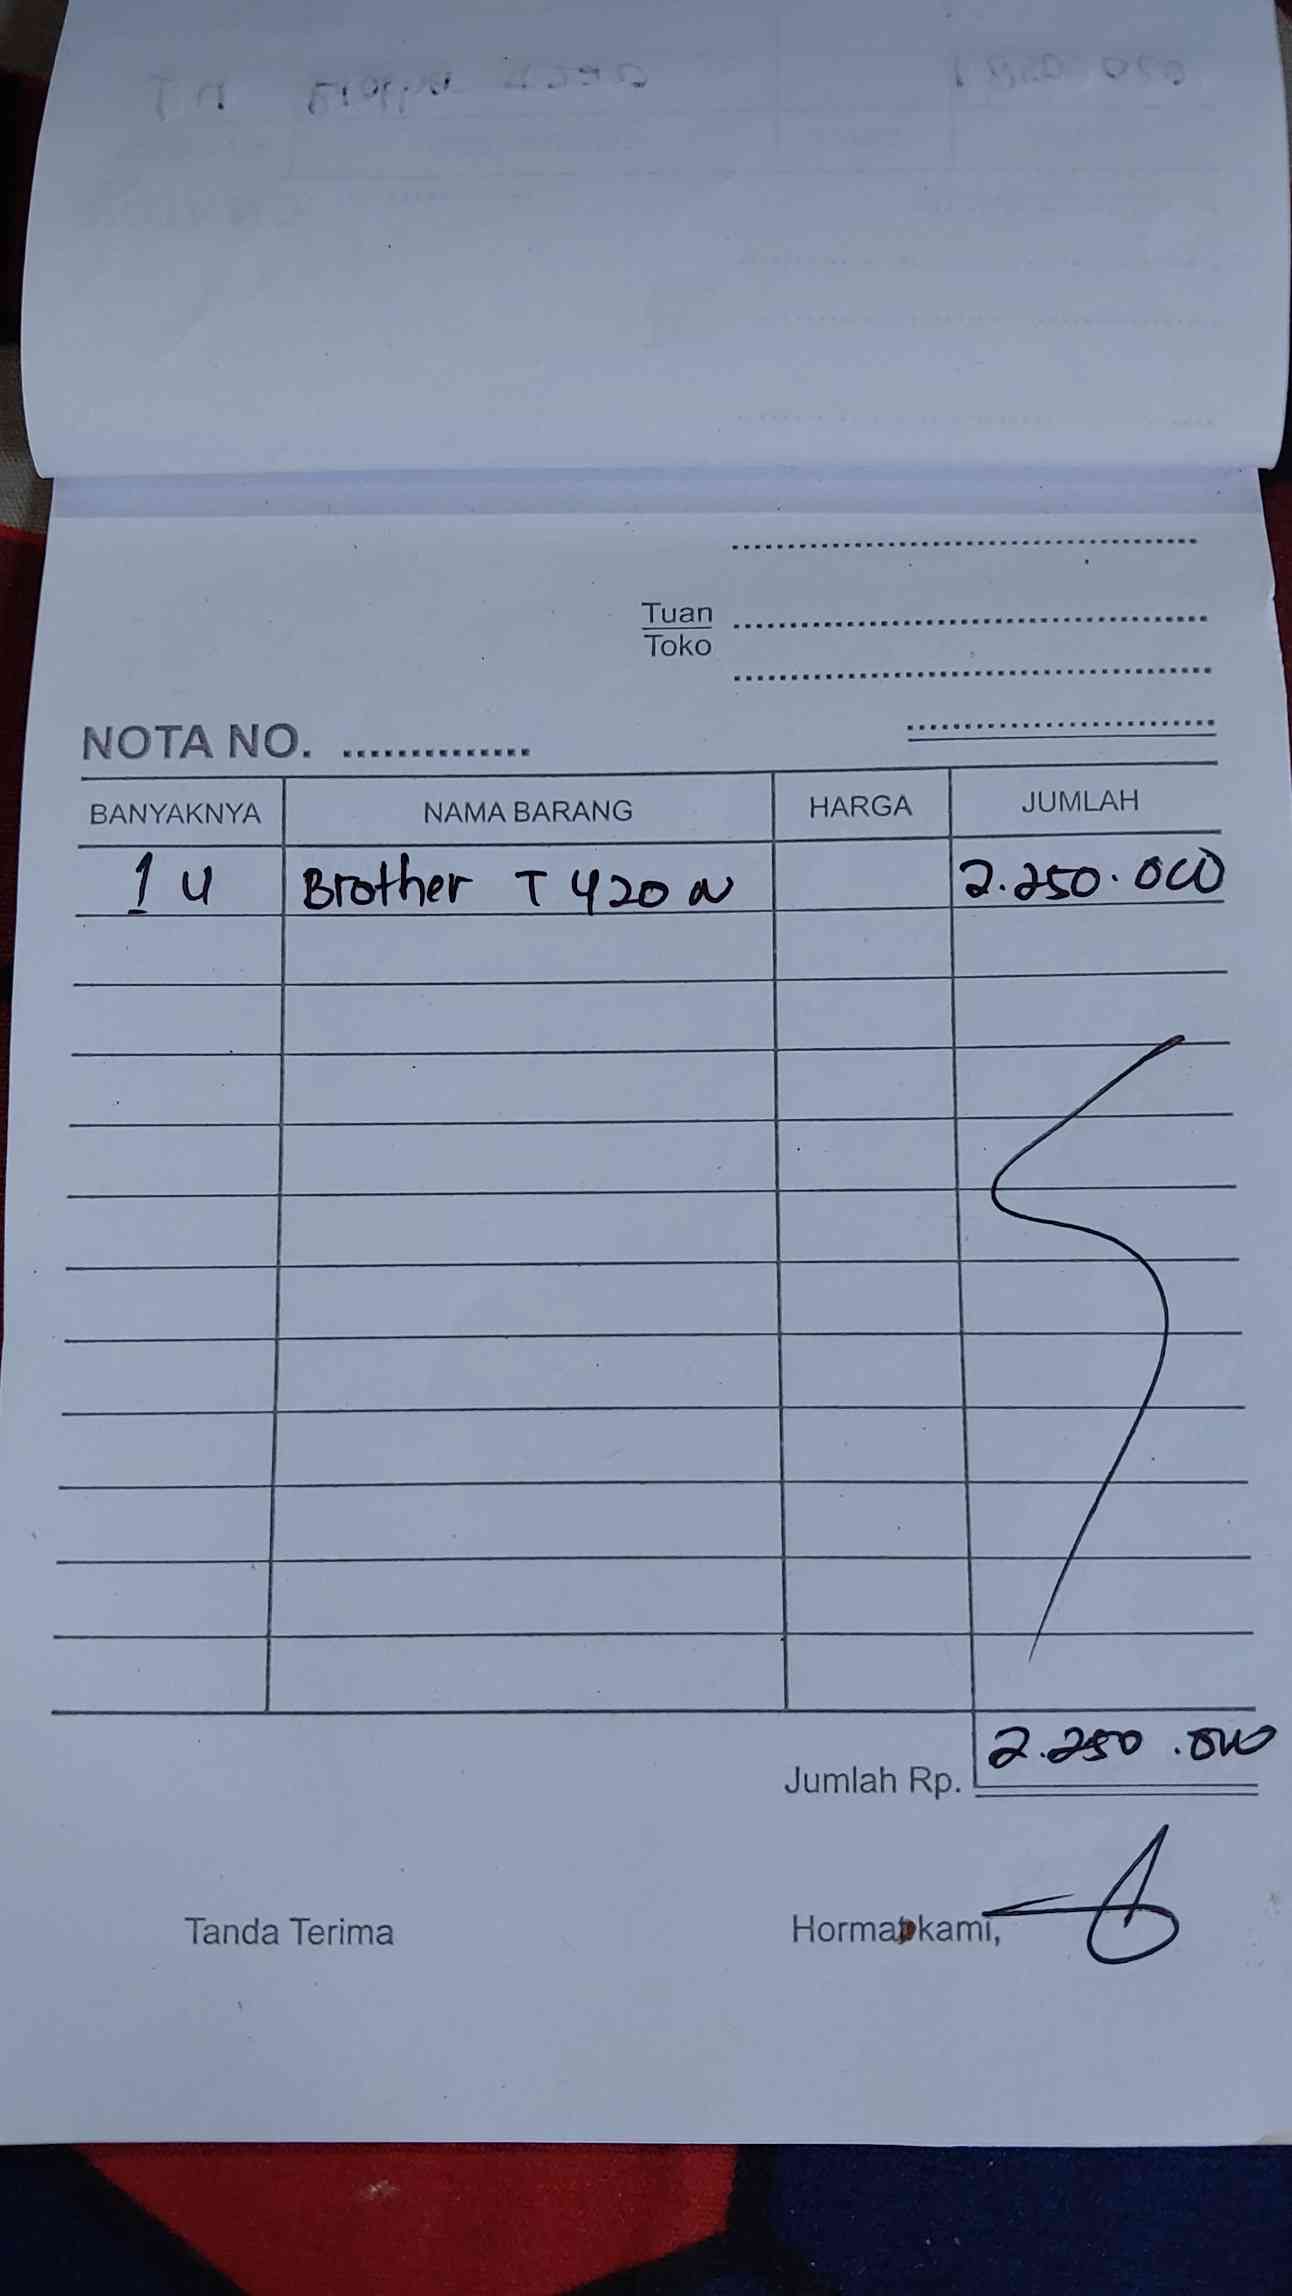 Tuan
Toko
NOTA NO. ..............
BANYAKNYA NAMA BARANG HARGA JUMLAH
1 U Brother T 420 W 2.250.000
Jumlah Rp. 2.250.000
Tanda Terima Hormat kami,